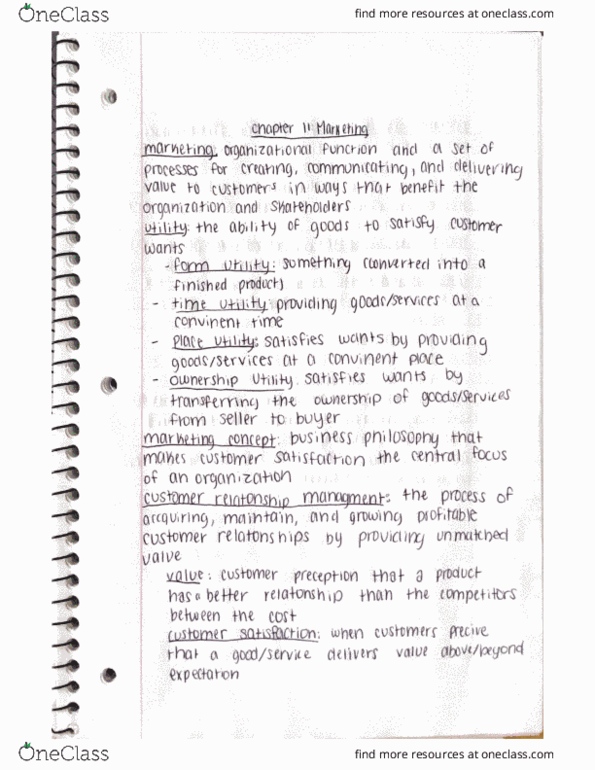 OneClass
find more resources at oneclass.com
Chapter 11 Marketing
marketing: organizational function and a set of
processes for creating, communicating, and delivering
value to customers in ways that benefit the
organization and shateholders
utility: the ability of goods to satisfy customer
wants
- form utility: something (converted into a
finished product)
- time utility: providing goods/services at a
convinent time
- place utility: satisfies wants by providing
goods/services at a convinent place
- ownership utility: satisfies wants by
transferring the ownership of goods/services
from seller to buyer
marketing concept: business philosophy that
makes customer satisfaction the central focus
of an organization
customer relatonship managment: the process of
acquiring, maintain, and growing profitable
customer relatonships by providing unmatched
value
value: customer preception that a product
has a better relatonship than the competitors
between the cost
customer satisfaction: when customers precive
that a good/service delivers value above/beyond
expectation
OneClass
find more resources at oneclass.com